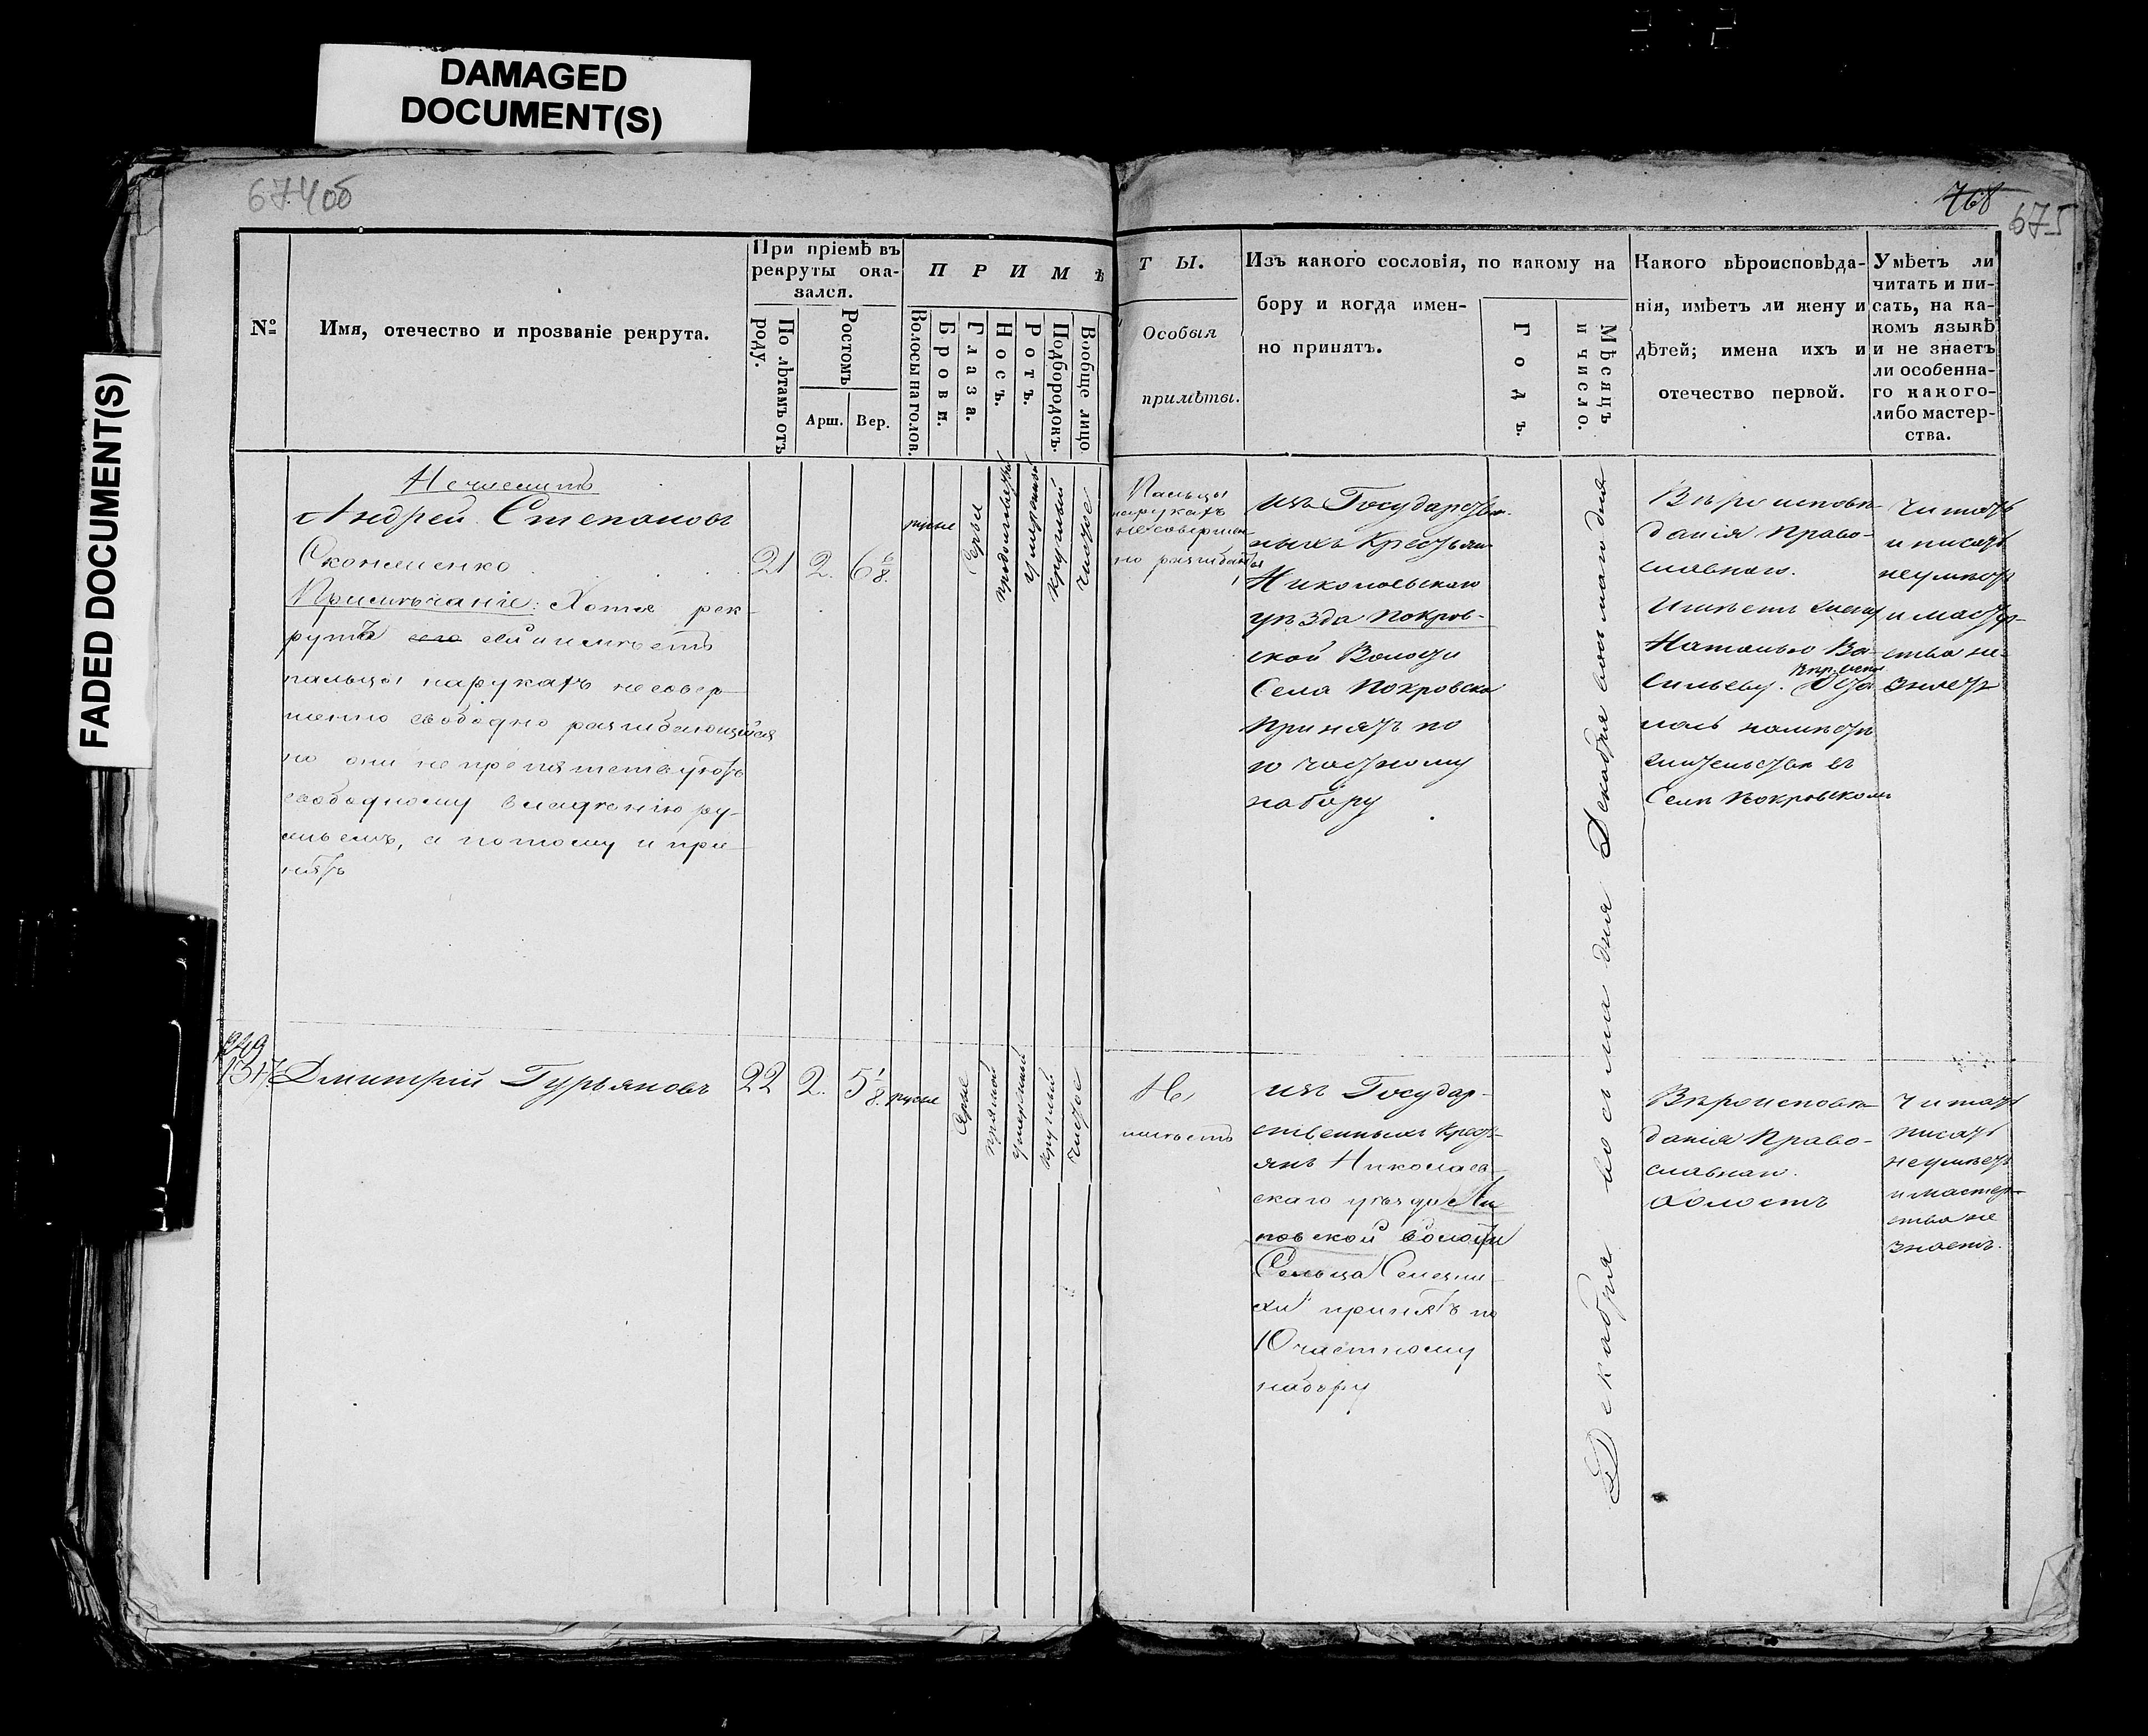 DAMAGED
DOCUMENT(S)
FADED DOCUMENT(S)
674об
768
675
№
Имя, отечество и прозваніе рекрута.
При пріемѣ въ
рекруты ока-
зался.
По лѣтамъ отъ
роду.
Ростомъ
Арш.
Вер.
ПРИМѢ
Волосы на голов.
Брови.
Глаза.
Носъ.
Ротъ.
Подбородокъ.
Вообще лицо
ТЫ.
Особыя
примѣты.
Изъ какого сословія, по какому на
бору и когда имен-
но принятъ.
Годъ.
Мѣсяцъ
и число.
Какого вѣроисповѣда-
нія, имѣетъ ли жену и
дѣтей; имена ихъ и
отечество первой.
Умѣетъ ли
читать и пи-
сать, на ка-
комъ языкѣ
и не знаетъ
ли особенна-
го какого-
либо мастер-
ства.
Андрей Степановъ
21 2. 6 6/8.
Примѣчаніе: Хотя рек-
рутъ сей и имѣетъ
пальцы на рукахъ несовер-
шенно свободно разгибающійся
но они не препятствуютъ
свободному владѣнію ру-
жьемъ, а потому и при-
нятъ
русые
сѣрые
продолговатый
умѣренный
круглый
чистое
Пальцы
на рукахъ
несовершен-
но разгибаетъ
изъ Государствен.
ныхъ Крестьян
Николаевскаго
уѣзда Покров-
ской Волости
Села Покровска
принятъ по
10 частному
набору
Декабря восьмаго дня
Вѣроисповѣ-
данія Право-
славнаго.
Имѣетъ жену
Наталью Ва-
сильеву.
жительство въ
Селѣ Покровскомъ
Читать
и писать
неумѣетъ
и мастер-
ства не-
знаетъ
1317.
Дмитрій Гурьяновъ
22 2. 5 1/8.
русые
сѣрые
прямой
умѣренный
круглый
чистое
Не
имѣетъ
изъ Государ-
ственныхъ Крест-
янъ Николаев-
скаго уѣзда Ли
повской волости
Сельца Селезни-
хи принятъ по
10 частному
набору
Декабря восьма дня
Вѣроисповѣ-
данія Право-
славнаго.
холостъ
Читать
писать
неумѣетъ
и мастер-
ства не
знаетъ.